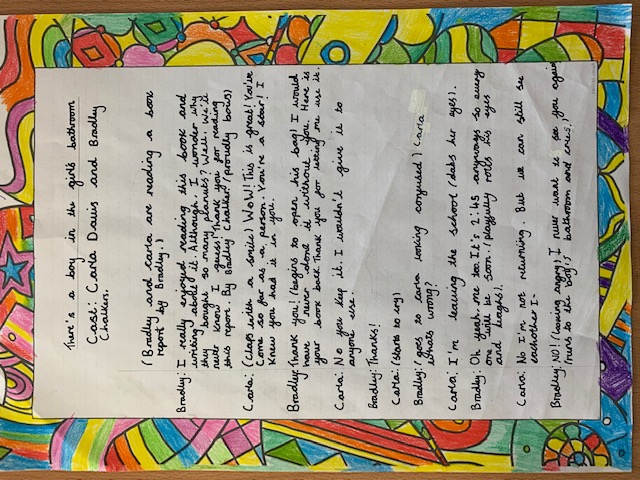 There's a boy in the girls bathroom
Cast: Carla Davis and Bradley
Chalkers.
(Bradley and carla are reading a book
report by Bradley.)
Bradley: I really enjoyed reading this book and
writing about it. Although, I wonder why
they bought so many planets? Well, we'll
never know I guess! Thank you for reading
this report By Bradley Chalker. (proudly bows)
Carla: (Claps with a smile) WoW! This is great! You've
Come so far as a person. You're a star! I
Knew you had it in you.
Bradley: Thank you! (begins to open his bag) I would
have never done it without you. Here is
your book back. Thank you for letting me use it.
Carla: No you keep it. I wouldn't give it to
anyone else.
Bradley: Thanks!
Carla: (starts to cry)
Bradley: (goes to carla looking confused) Carla
Whats wrong?
Carla: I'm leaving the school (dabs her eyes).
Bradley: Oh yeah me too. It's 2:45 anyways so every
one will be soon. (playfully rolls his eyes
and laughs).
Carla: No I'm not returning But we can still see
eachother I-
Bradley: NO! (looking angry) I never want to see you again
(runs to the boy's bathroom and cries.)